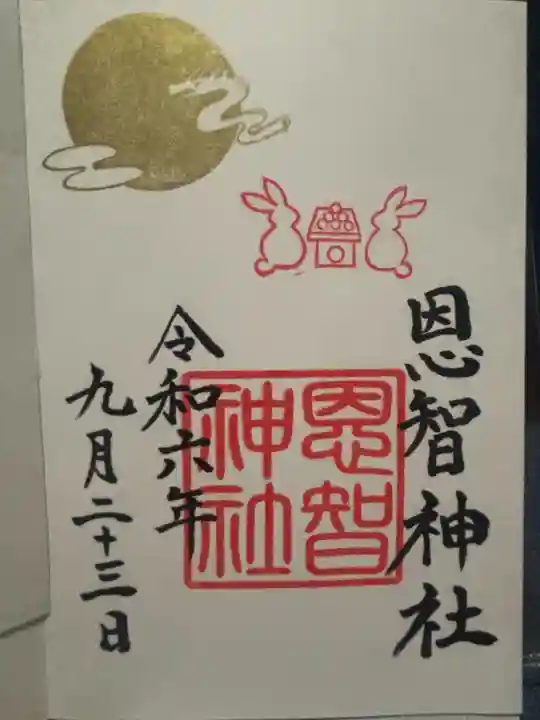 恩智神社
恩智
神社
令和六年
九月二十三日